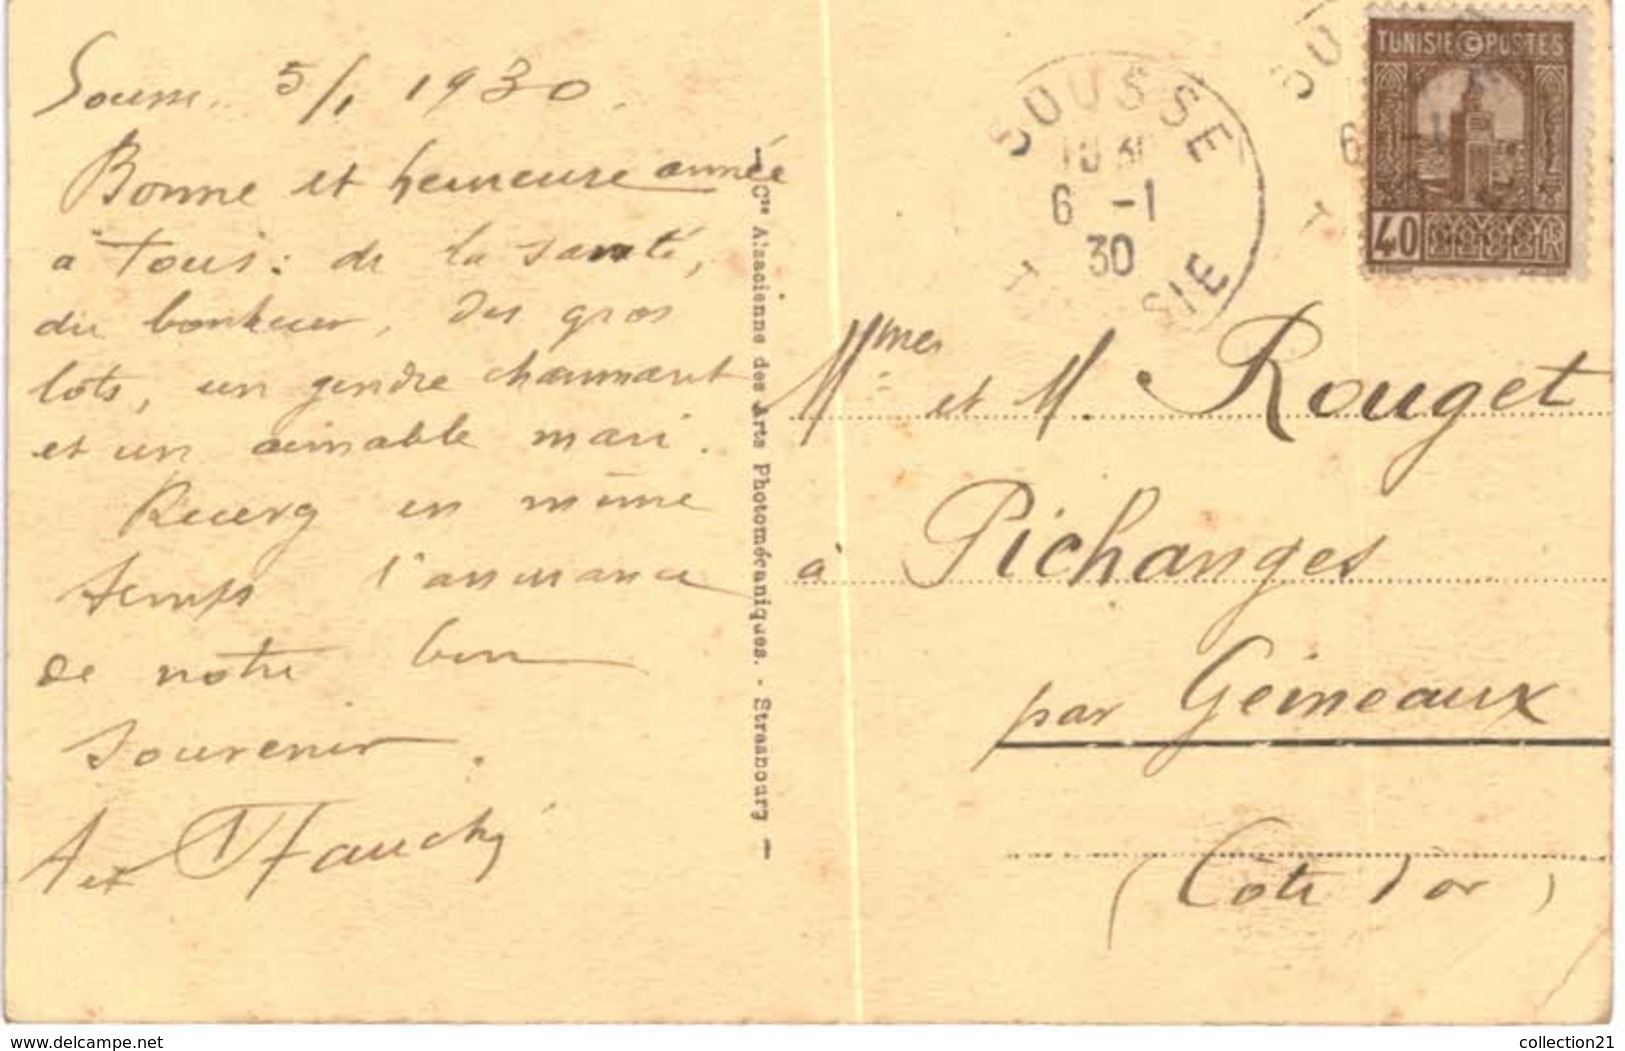 Sousse. 5/1 1930.
Bonne et heureuse année
à Tous: de la santé,
du bonheur, des gros
lots, un gendre charmant
et un aimable mari.
Recevez en même
temps l'assurance
de notre bon
souvenir.
Cie Alsacienne des Arts Photomécaniques. - Strasbourg
SOUSSE
1830
6 -1
30
SIE
SOU
6 -1
TUNISIE POSTES
40
Mmes et M. Rouget
à Pichanges
par Gemeaux
(Côte d'or)
www.delcampe.net
collection21